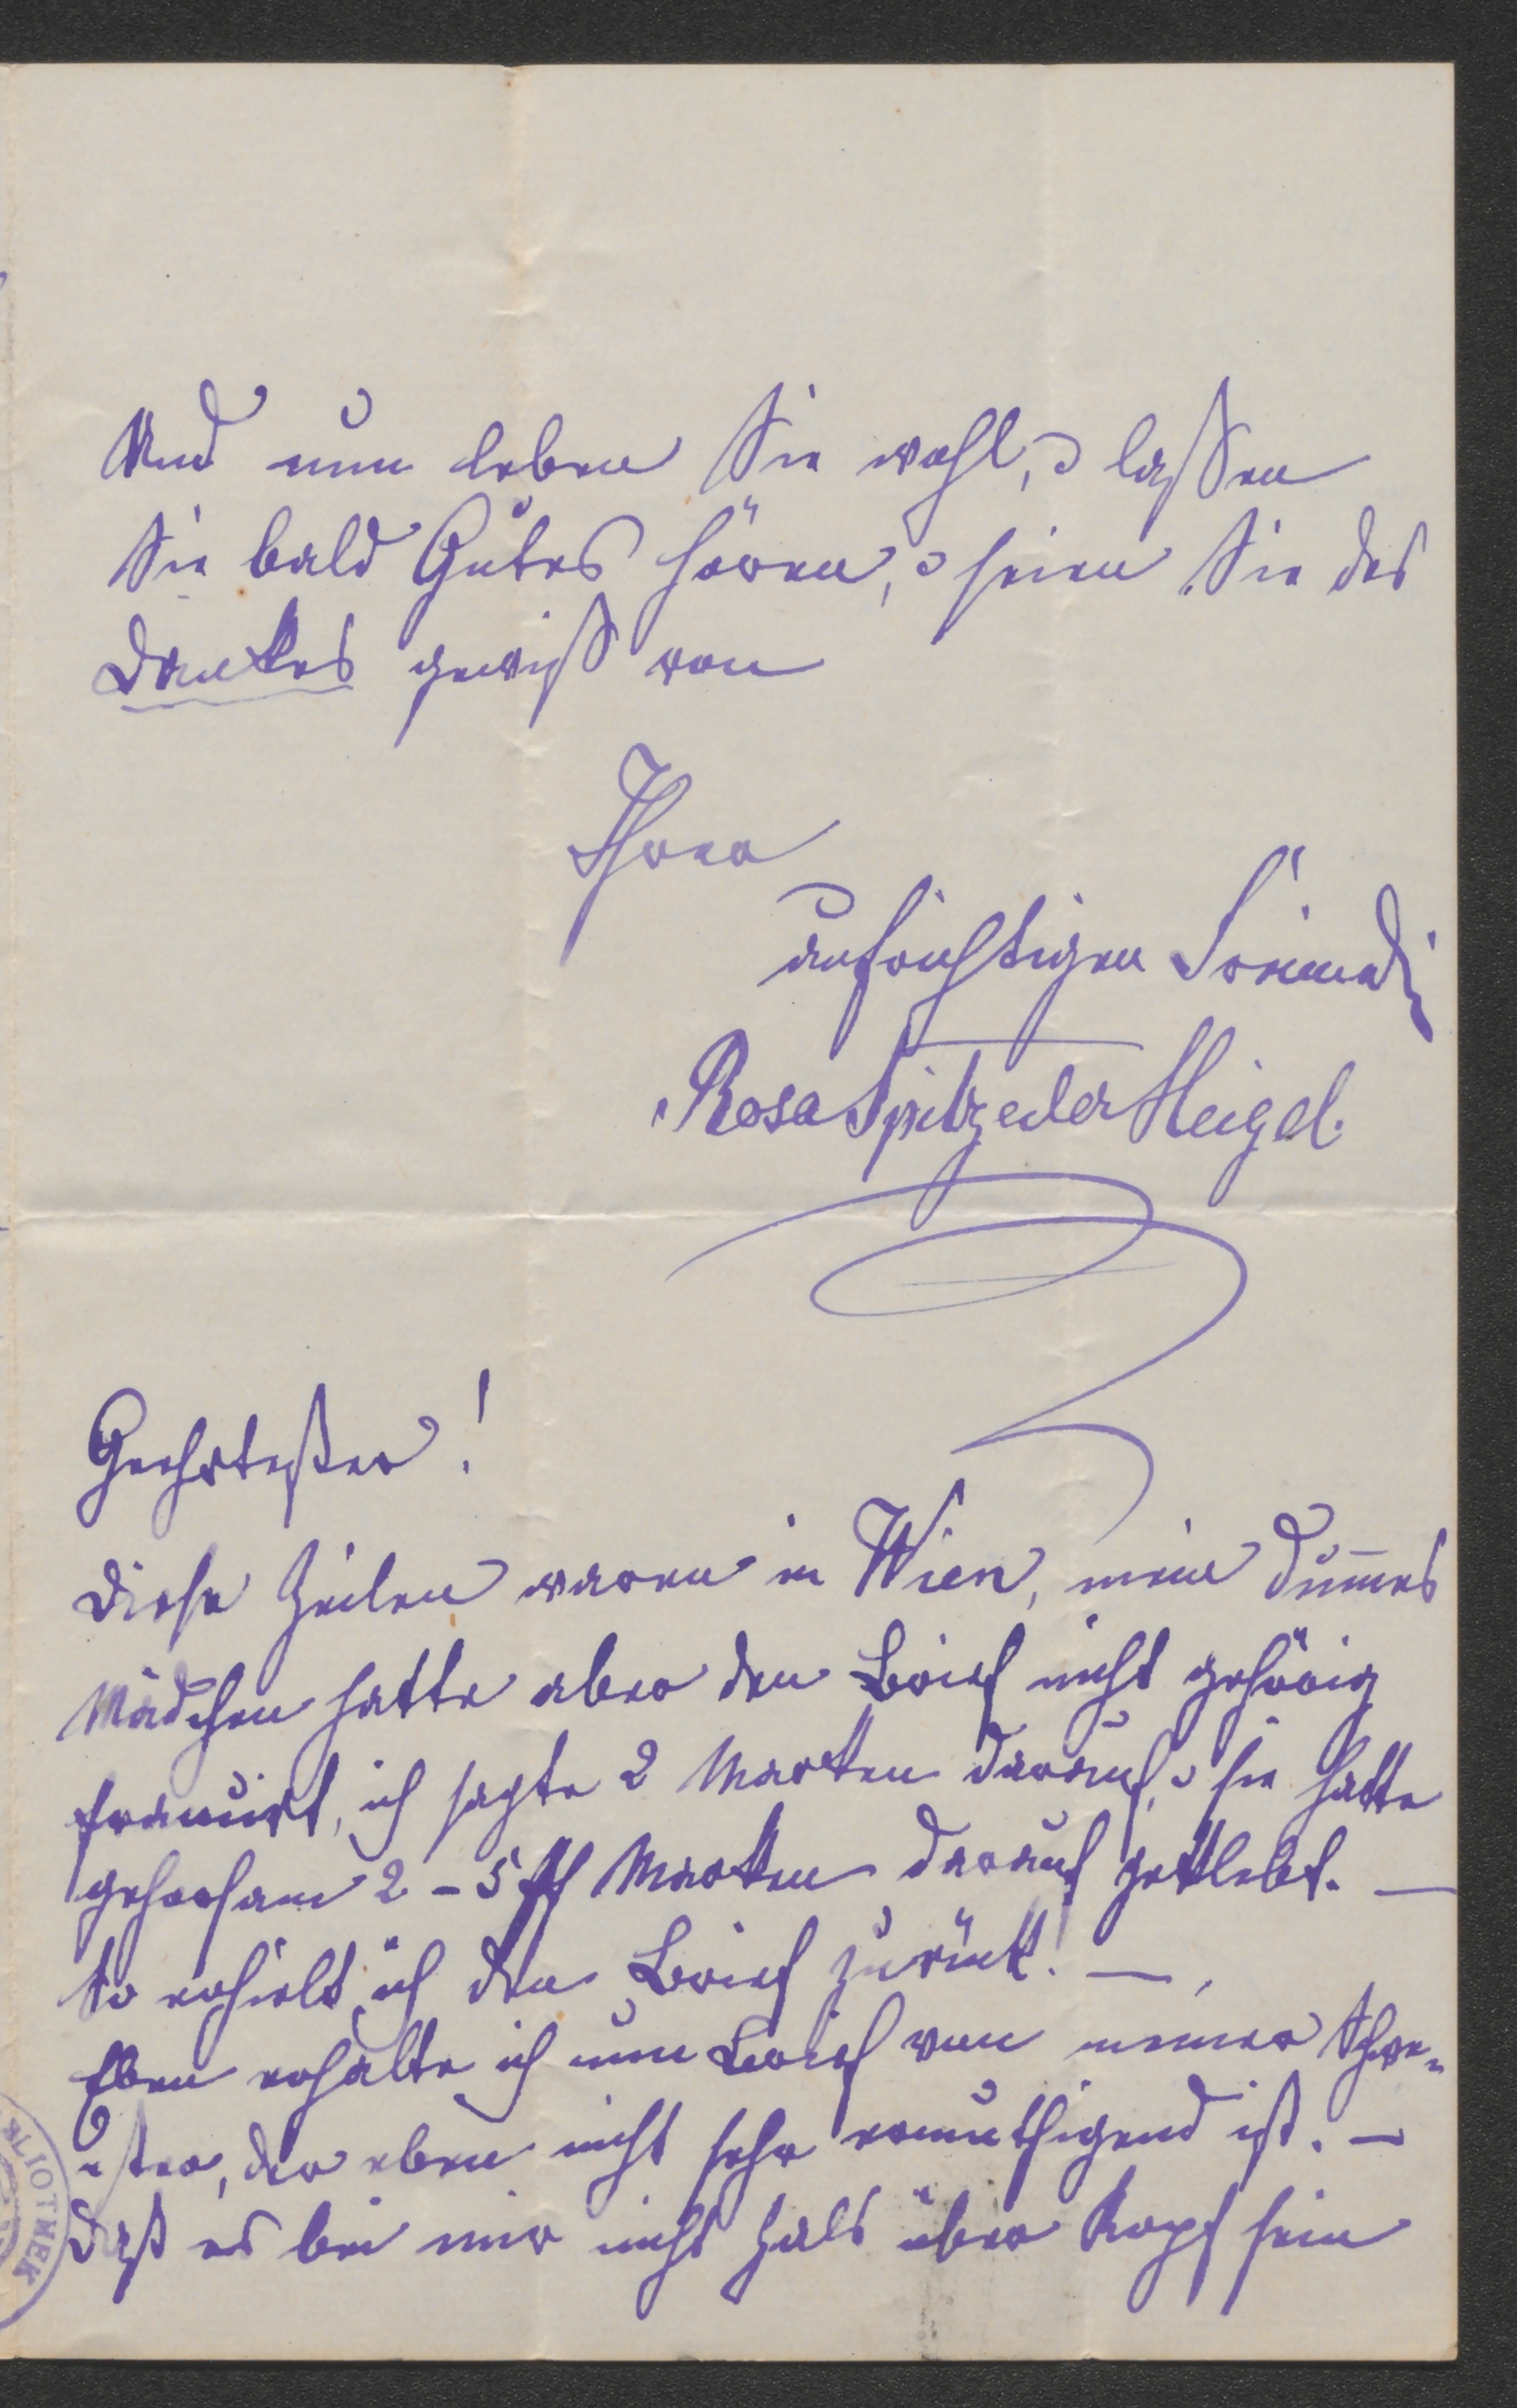 Und nun leben Sie wohl, u laßen
Sie bald Gutes hören, u seien Sie des
Dankes gewiß von
Ihrer
aufrichtigen Freundin
Rosa Spitzeder Heigel.
Geehrtester!
Diese Zeilen waren in Wien, mein dum̅es
Mädchen hatte aber den Brief nicht gehörig
francirt, ich sagte 2 Marken darauf, u sie hatte
gehorsam 2 – 5 Pf Marken darauf geklebt. —
So erhielt ich den Brief zurück! —
Eben erhalte ich nun Brief von meiner Schwe-
ster, der eben nicht sehr ermuthigend ist. —
Daß es bei mir nicht Hals über Kopf sein
LIOTHEK